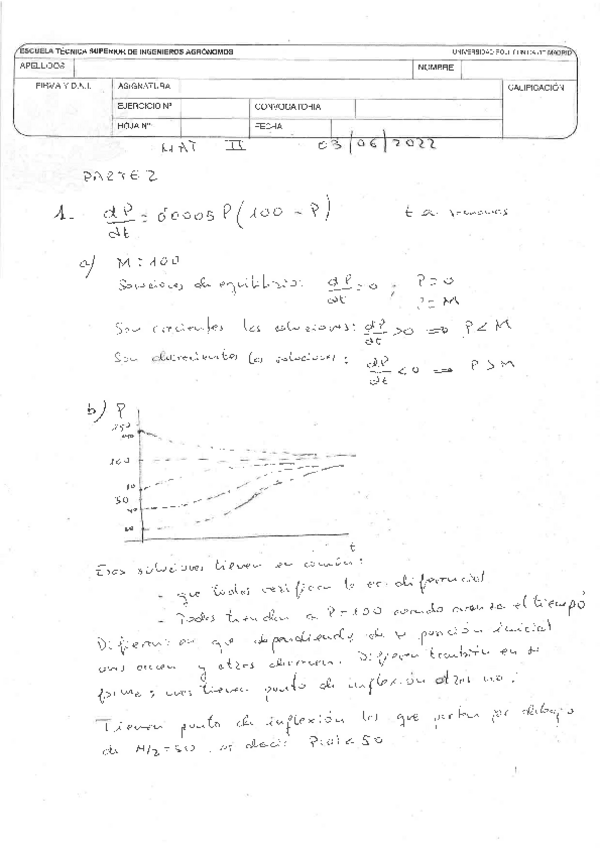 ESCUELA TÉCNICA SUPERIOR DE INGENIEROS AGRÓNOMOS
UNIVERSIDAD POLITÉCNICA DE MADRID
APELLIDOS
NOMBRE
FIRMA Y D.N.I.
ASIGNATURA
CALIFICACIÓN
EJERCICIO Nº
CONVOCATORIA
HOJA Nº
FECHA
MAT II 03/06/2022
PARTE 2
1. dP/dt = 0'0005 P(100 - P) t en semanas
a) M = 100
Soluciones de equilibrio: dP/dt = 0 ; P = 0
P = M
Son crecientes las soluciones: dP/dt > 0 => P < M
Son decrecientes las soluciones: dP/dt < 0 => P > M
b) P
150
100
50
t
Esas soluciones tienen en común:
- que todas verifican la ec. diferencial
- Todas tienden a P = 100 cuando avanza el tiempo
Difieren en que dependiendo de su posición inicial
unas crecen y otras decrecen. Difieren también en su
forma: unas tienen punto de inflexión otras no.
Tienen punto de inflexión las que parten por debajo
de M/2 = 50, es decir P(0) < 50